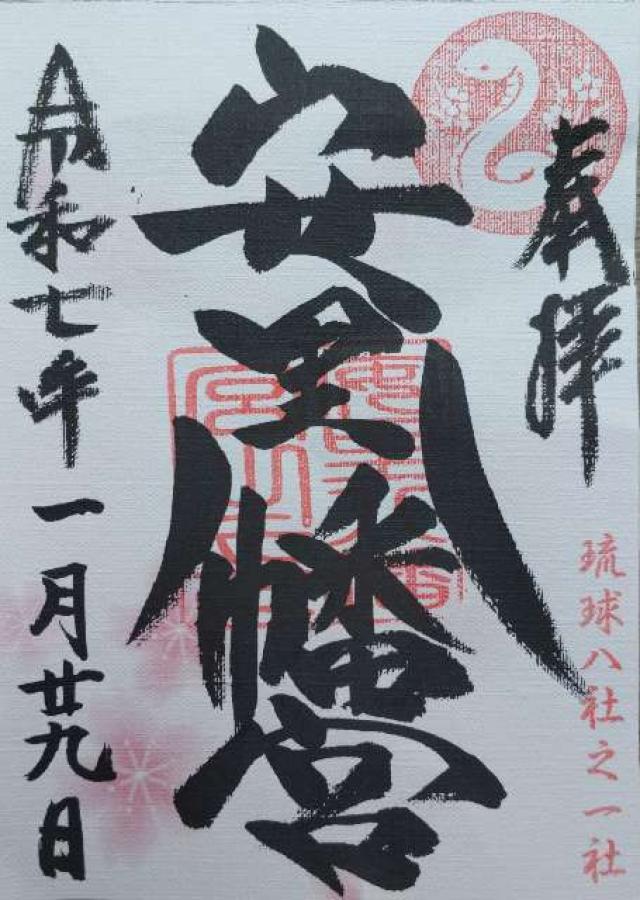 奉拝
琉球八社之一社
安里八幡宮
令和七年一月廿九日